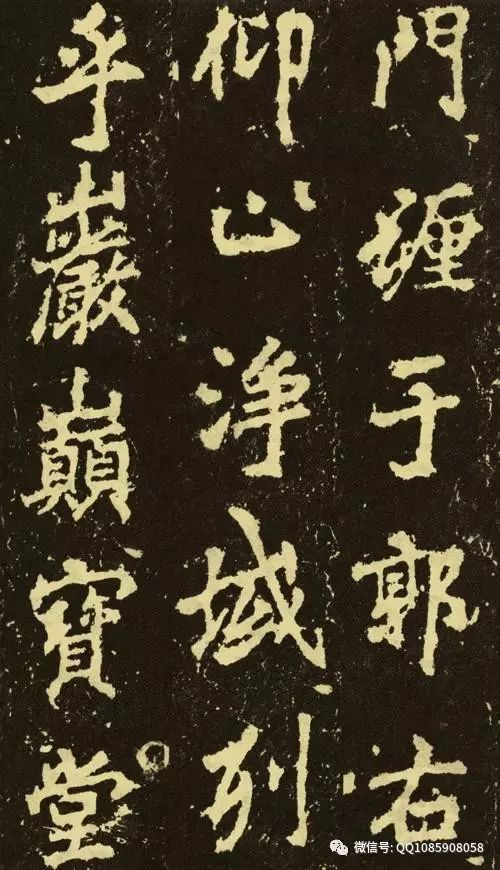 門纏于郭右
仰止淨域列
乎巖巔寶堂
微信号: QQ1085908058